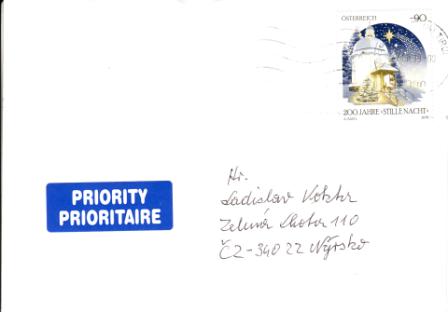 ÖSTERREICH 90
200 JAHRE »STILLE NACHT«
Hr.
Ladislav
Zelená Lhota 110
ČZ-340 22 Nýrsko
PRIORITY
PRIORITAIRE